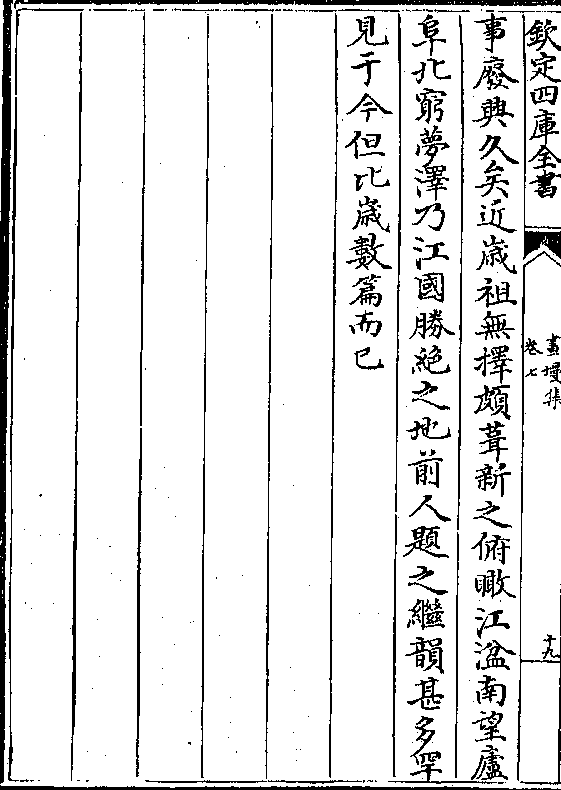 欽定四庫全書
畫墁集
卷七
十九
事廢興久矣近歲祖無擇頗葺新之俯瞰江湓南望廬
阜北窮夢澤乃江國勝絶之地前人題之繼韻甚多罕
見于今但比歲數篇而已